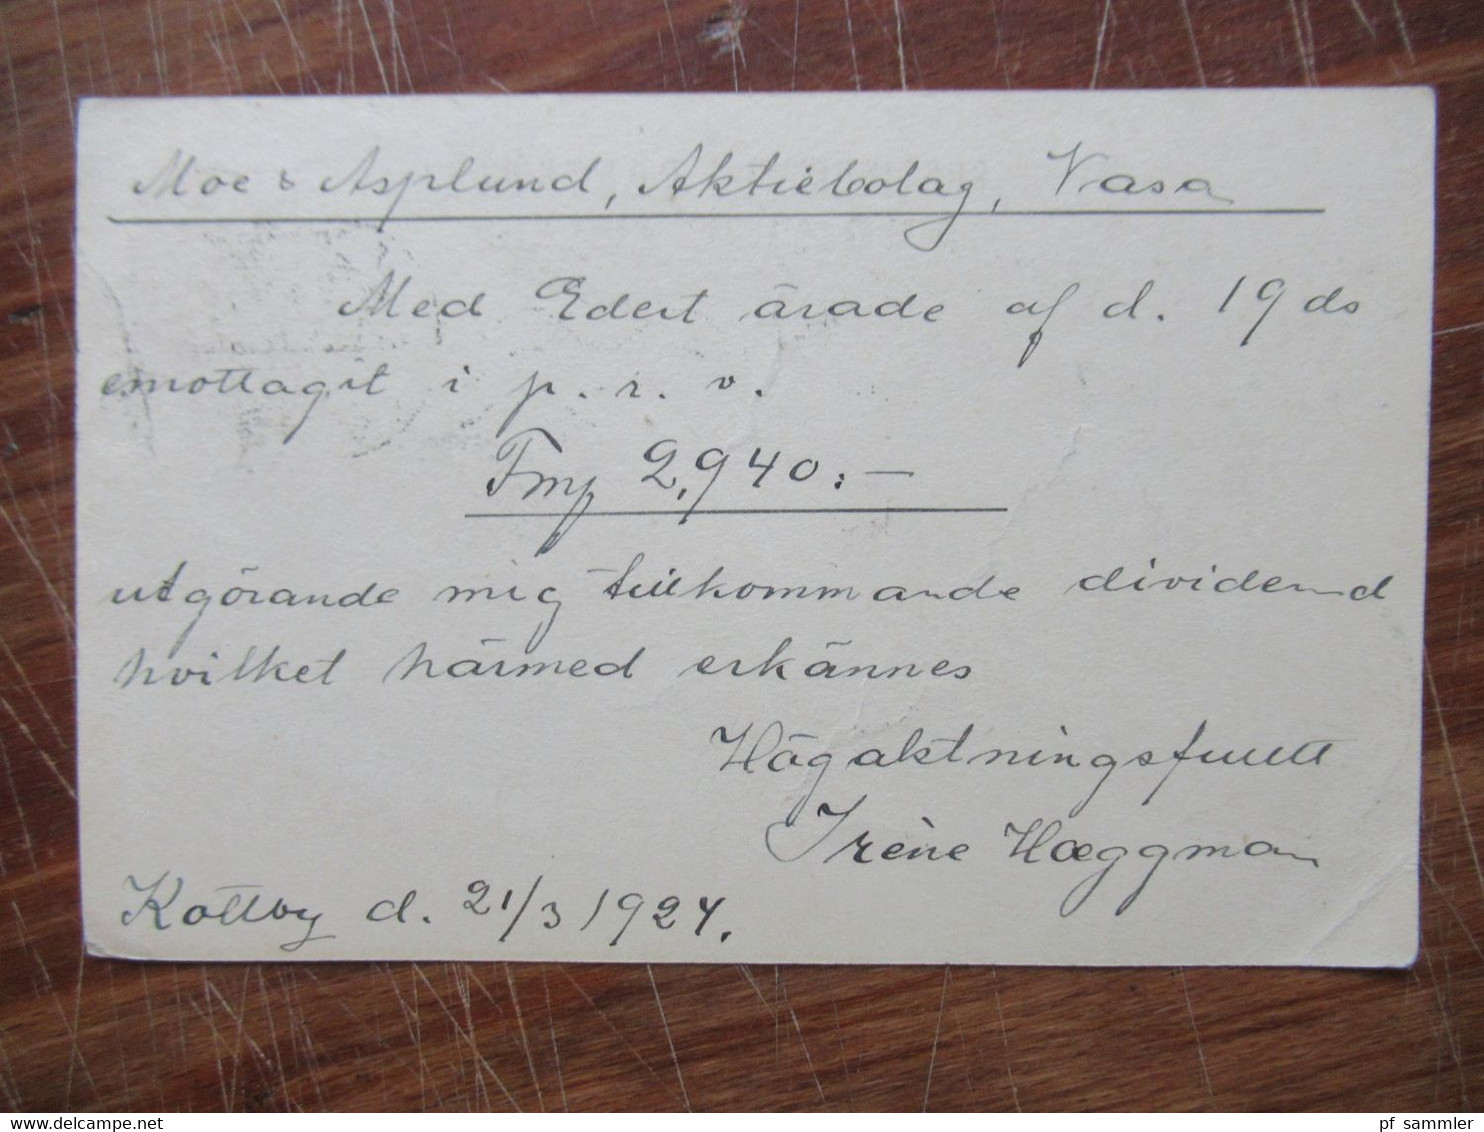 Moe & Asplund, Aktiebolag, Vasa
Med Edert ärade af d. 19 ds
emottagit i p. r. v.
Fmk 2,940:—
utgörande mig tillkommande dividend
hvilket härmed erkännes
Högaktningsfullt
Irène Hæggman
Kottby d. 21/3 1924.
www.delcampe.net
pf_sammler